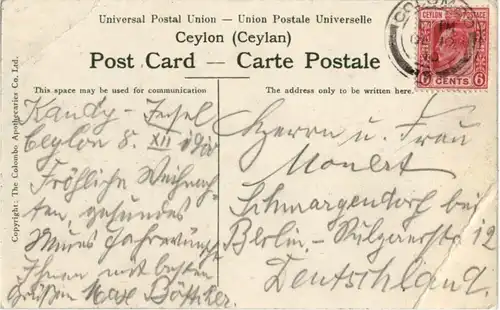 Universal Postal Union - Union Postale Universelle
Ceylon (Ceylan)
Post Card — Carte Postale
This space may be used for communication
The address only to be written here.
Copyright: The Colombo Apothecaries Co. Ltd.
COLOMBO
CEYLON POSTAGE
6 CENTS 6
Kandy - Insel
Ceylon 8. XII 19
Fröhliche Weihnach-
ten, gesundes
Neues Jahr wünscht
Ihnen mit besten
Grüßen Max Böttcher.
Herrn u. Frau
Schmargendorf bei
Berlin - Sulzaerstr 12
Deutschland.